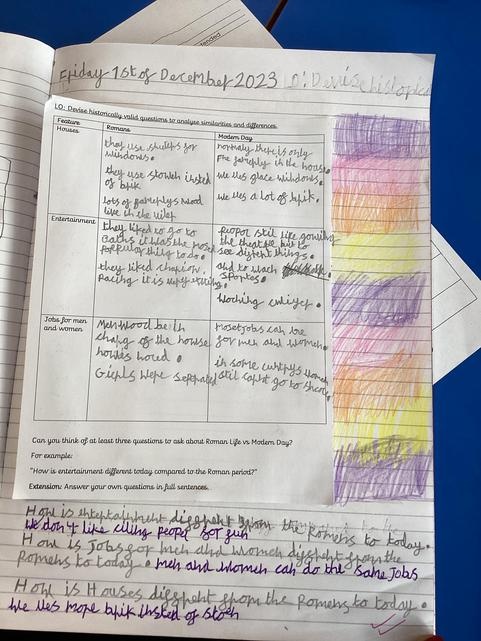 ntended
Friday 1st of December 2023 LO: Devise historica
LO: Devise historically valid questions to analyse similarities and differences.
Feature
Romans
Modern Day
Houses
they use shulters for
windows.
they use stoweh insted
of brik
lots of famerlys
live in the viler
normaly there is only
one famerly in the house.
We ues glace windows.
We ues a lot of brik.
Entertainment
they liked to go to
baths it was the most
populur thing to do.
they liked charion
racing it is very exiting.
peopol still like gowing
the theatre but to
see diffrent things.
and to wach
sportes.
Jobs for men
and women
Men wood be in
charg of the house
howes hored
Gierls were seprated
Most jobs can be
for men and women.
in some cuntrys women
still canht go to shcool.
Can you think of at least three questions to ask about Roman Life vs Modern Day?
For example:
"How is entertainment different today compared to the Roman period?"
Extension: Answer your own questions in full sentences.
How is entertainment diffrent from the Romens to today.
We don't like cilling peopol for fun
How is Jobs for men and women diffrent from the
Romens to today. men and women can do the same Jobs
How is Houses diffrent from the Romens to today.
We ues more brik insted of stoeh